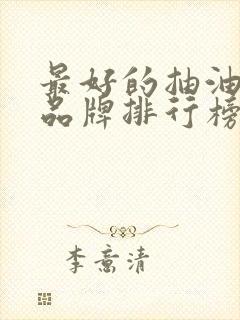 最好的抽油
品牌排行榜
李意清